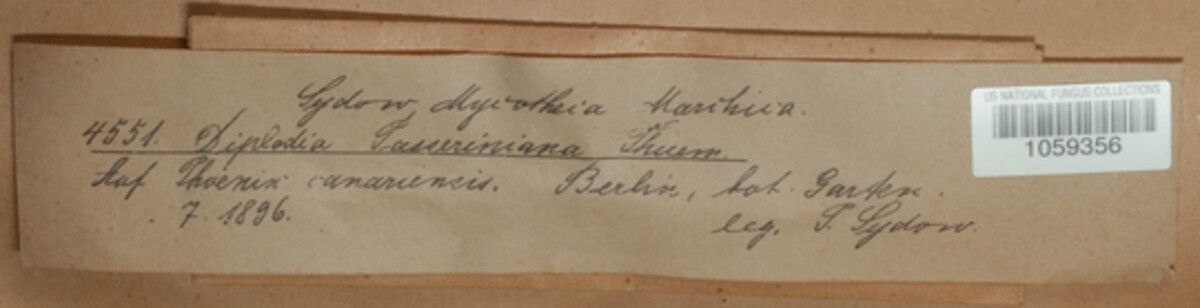 Sydow, Mycotheca Marchica.
4551. Diplodia Passeriniana Thuem.
Auf Phoenix canariensis. Berlin, bot. Garten.
7. 1896.
leg. P. Sydow.
US NATIONAL FUNGUS COLLECTIONS
1059356